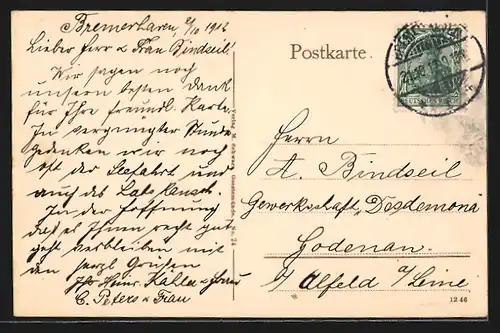 Bremerhaven, 21/10 1912
Lieber Herr & Frau Bindseil!
Wir sagen noch
unsern besten Dank
für Ihre freundl. Karte.
In vergnügter Stunde
gedenken wir noch
oft der Seefahrt und
auch des
In der Hoffnung
daß es Ihnen recht gut
geht verbleiben mit
den herzl Grüßen
Heinr. Kähler & Frau
C. Peters & Frau
Postkarte.
Herrn
A. Bindseil
Gewerkschaft „Desdemona
Godenau.
b/ Alfeld a/Leine
1246